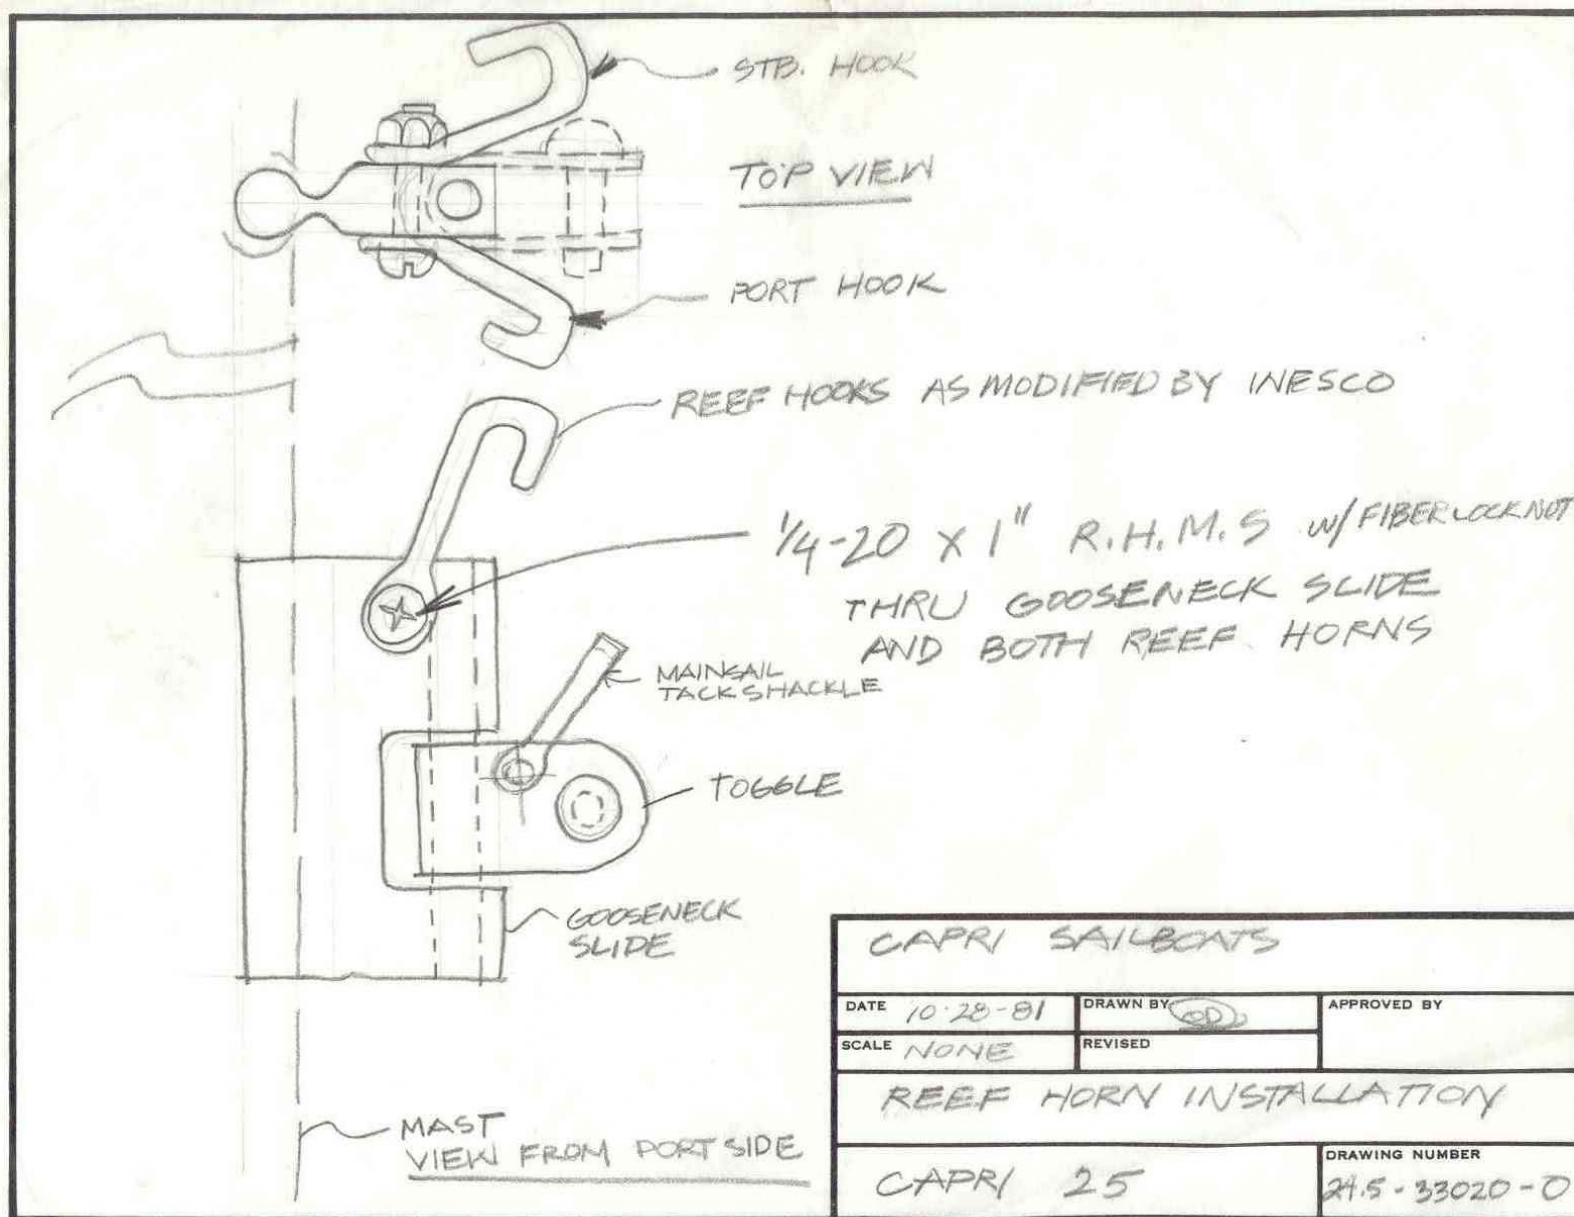 STB. HOOK
TOP VIEW
PORT HOOK
REEF HOOKS AS MODIFIED BY INESCO
1/4-20 X 1" R.H.M.S W/ FIBER LOCKNUT
THRU GOOSENECK SLIDE
AND BOTH REEF HORNS
MAINSAIL
TACK SHACKLE
TOGGLE
GOOSENECK
SLIDE
MAST
VIEW FROM PORT SIDE
CAPRI SAILBOATS
DATE 10-28-81
DRAWN BY
APPROVED BY
SCALE NONE
REVISED
REEF HORN INSTALLATION
CAPRI 25
DRAWING NUMBER
24.5-33020-0